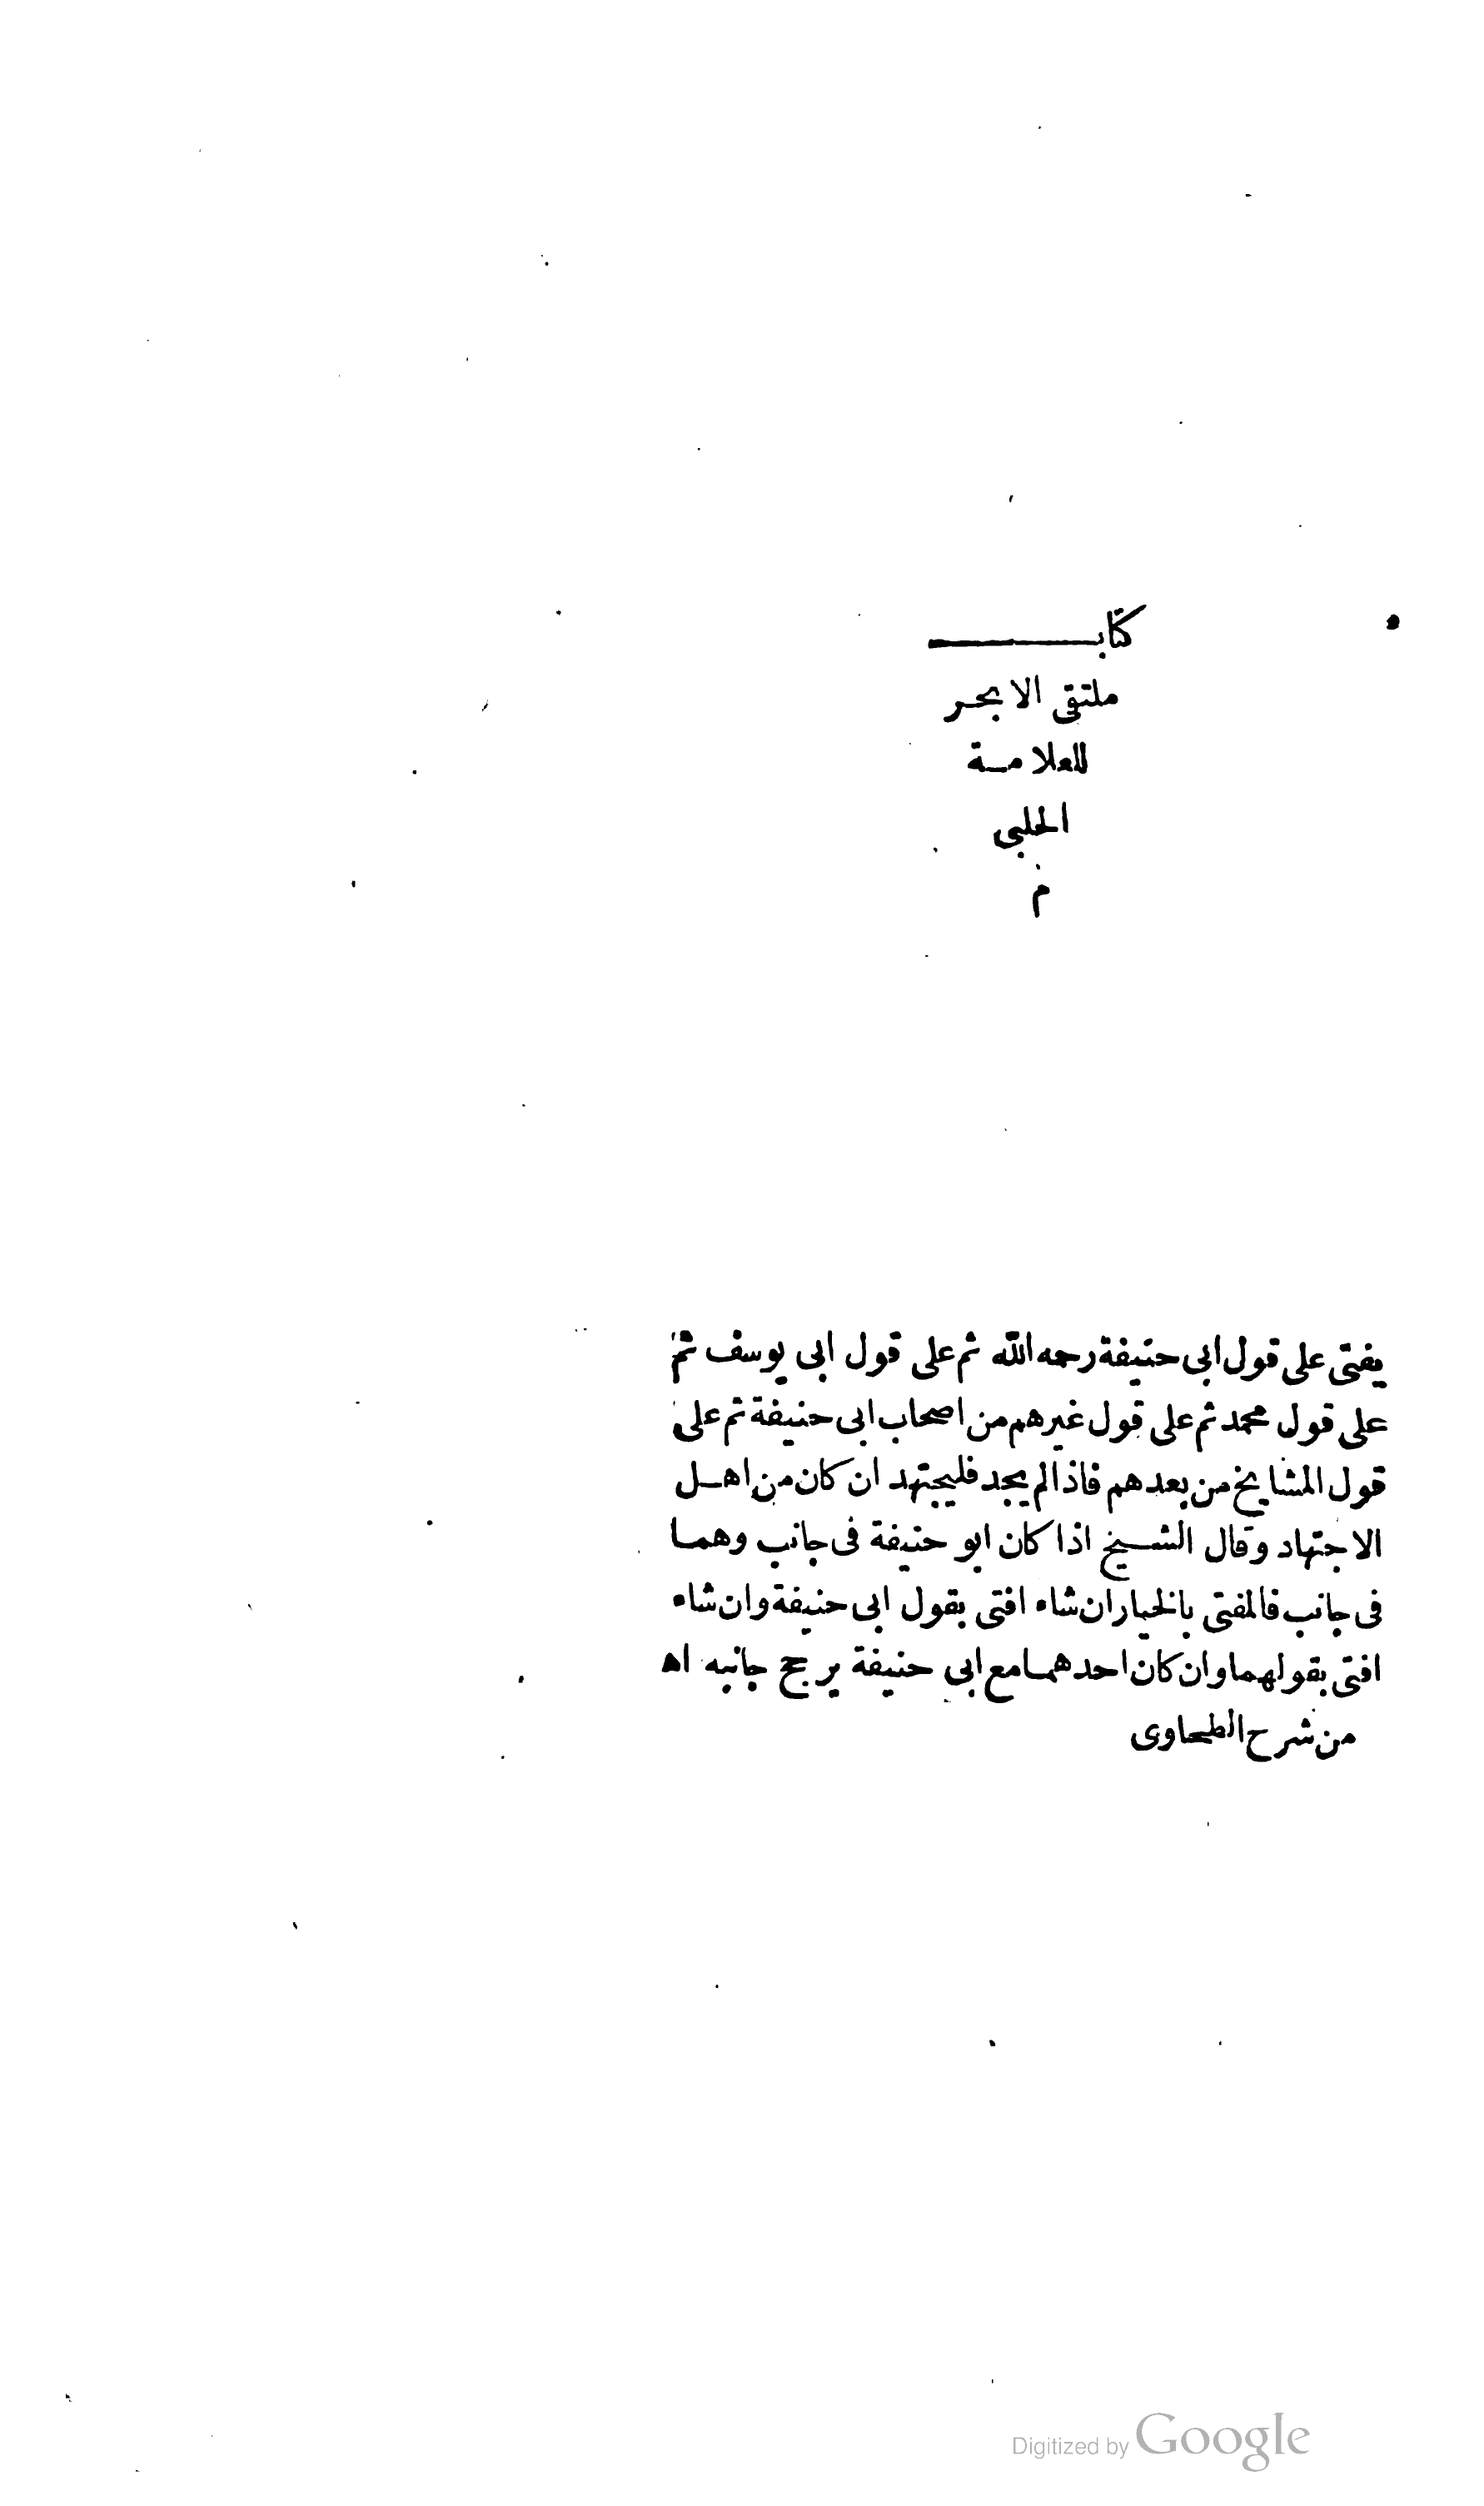 كتاب
ملتقى الابحر
للعلامة
الحلبي
م
يفتى على قول ابى حنيفة رحمه الله ثم على قول ابى يوسف ثم
على قول محمد ثم على قول غيرهم من اصحاب ابى حنيفة ثم على
قول المشايخ من بعدهم فاذا لم يجد فليجتهد ان كان من اهل
الاجتهاد وقال الشيخ اذا كان ابو حنيفة فى جانب وهما
فى جانب فالمفتى بالخيار ان شاء افتى بقول ابى حنيفة وان شاء
افتى بقولهما وان كان احدهما مع ابى حنيفة يرجح جانبه اه
من شرح الطحاوى
Digitized by Google